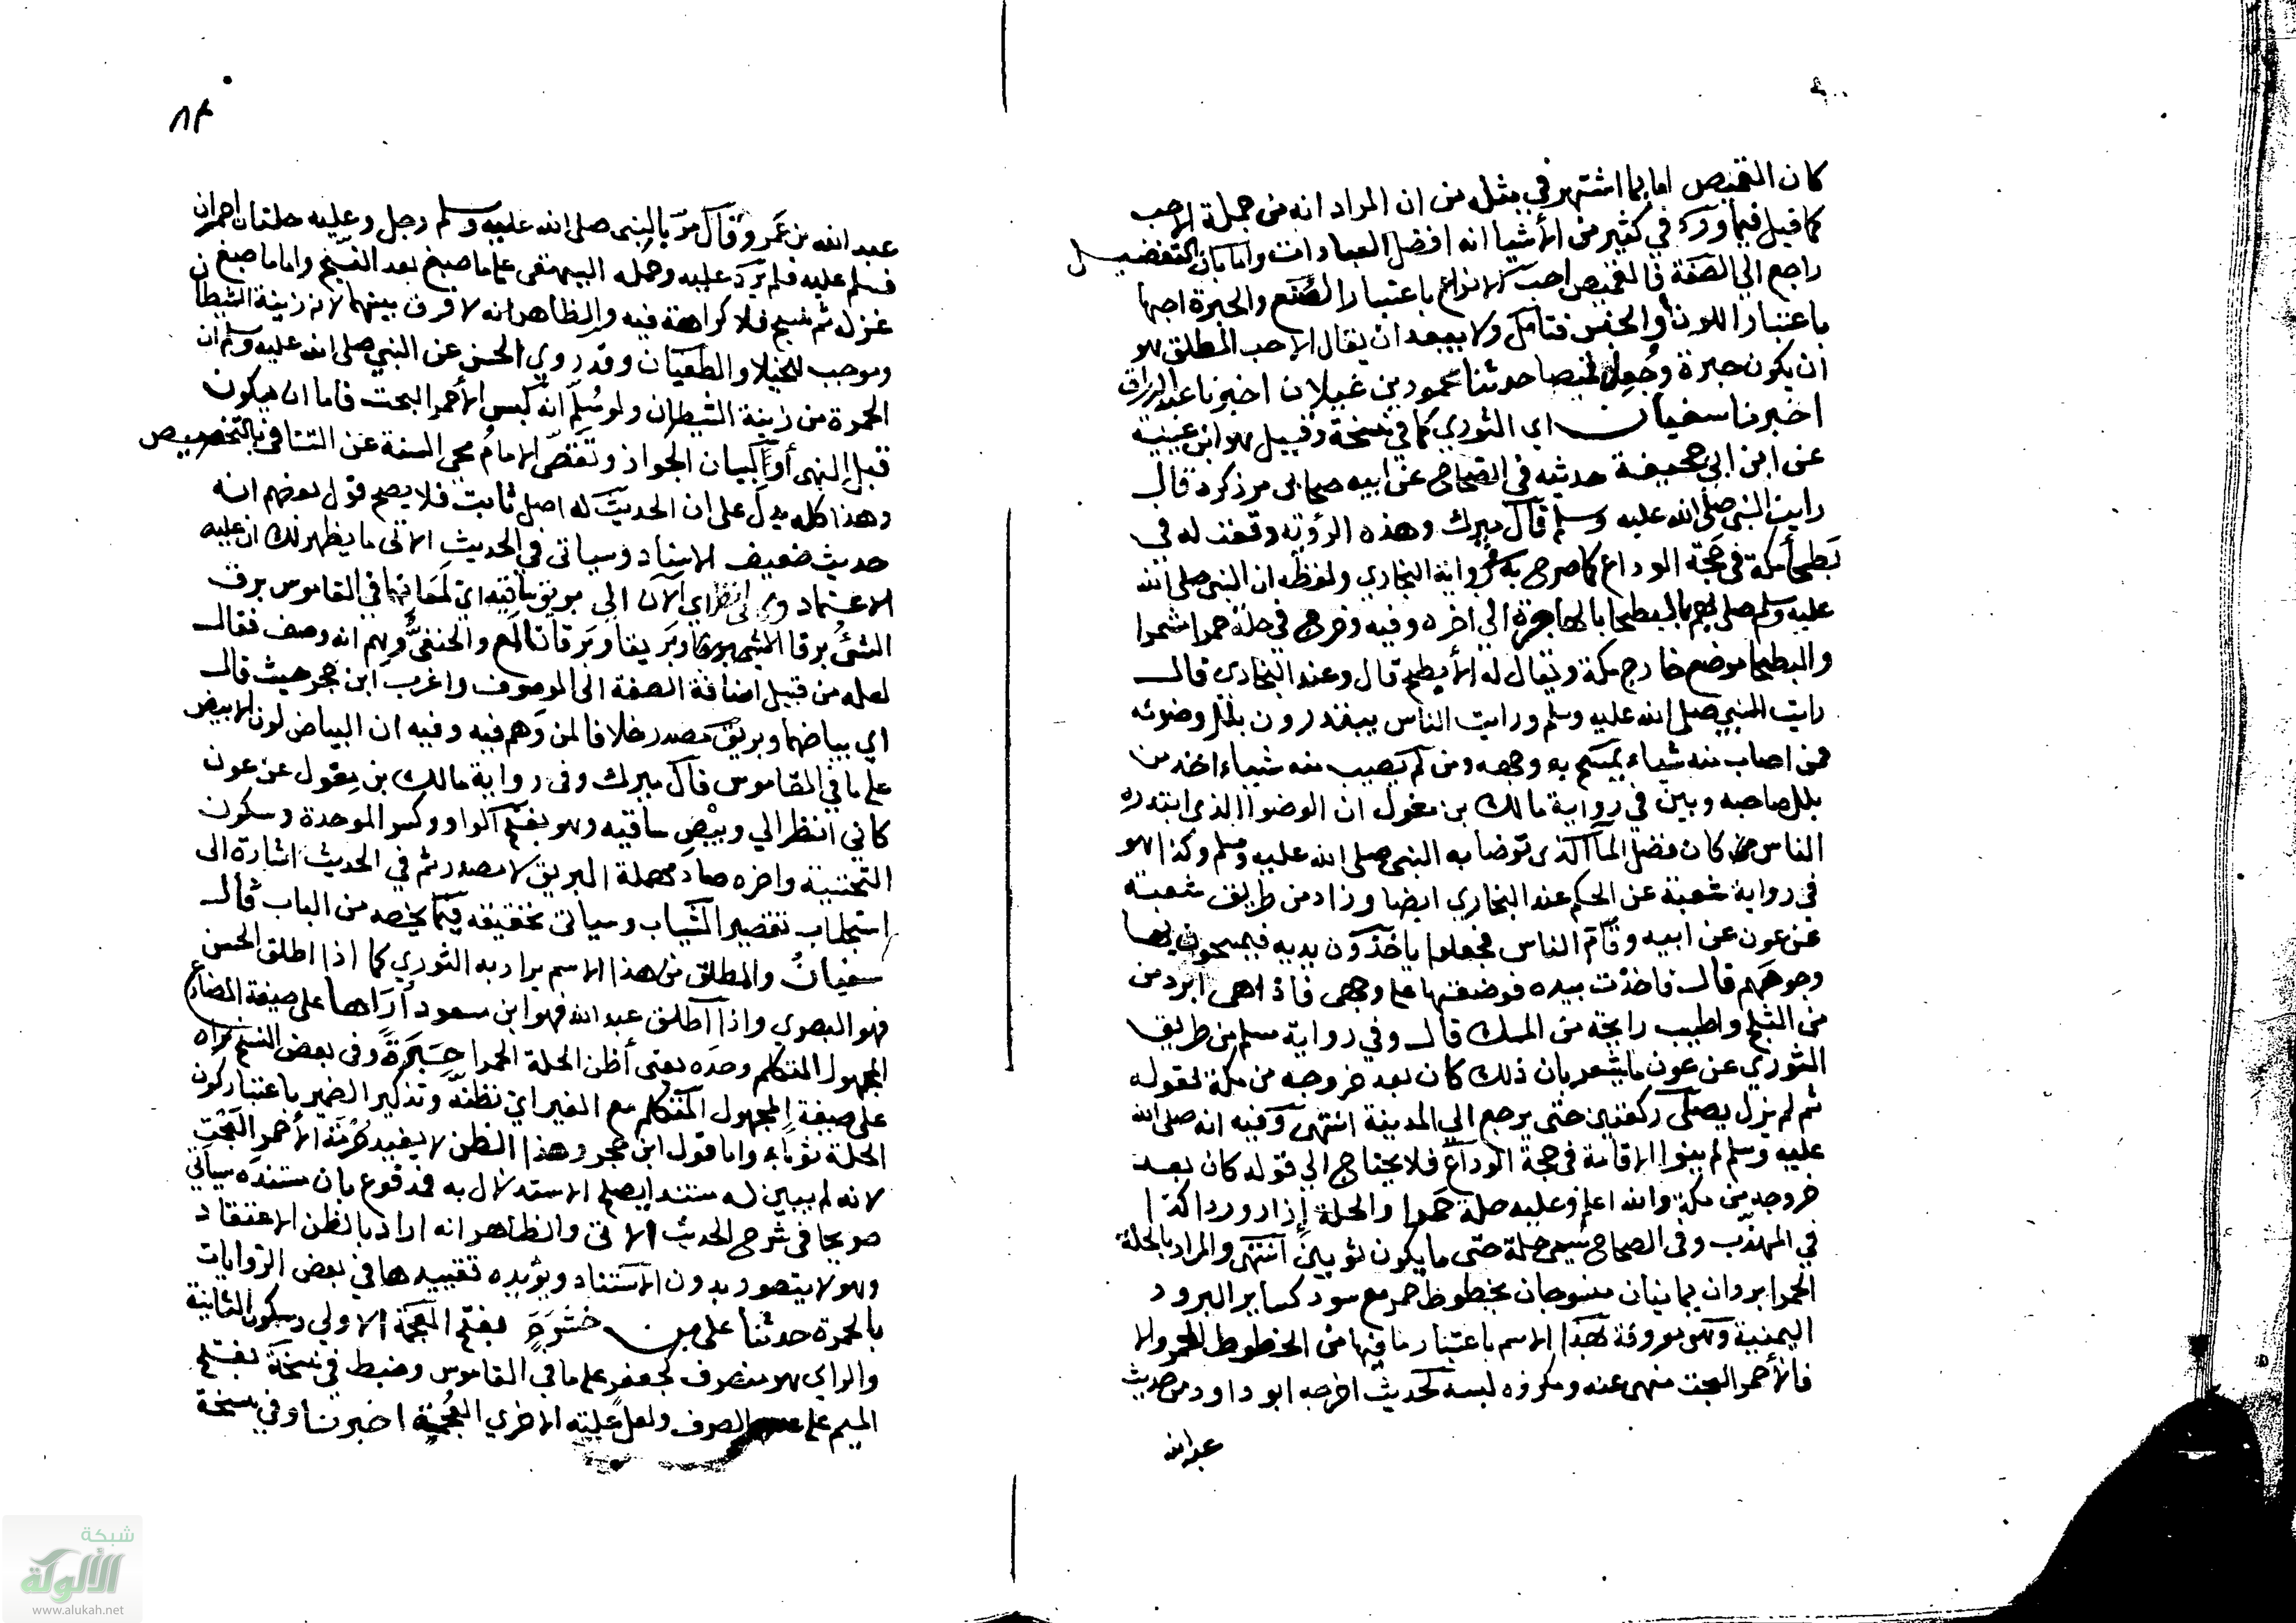 كان القميص اما بما اشتهر في مثله من ان المراد انه من جملة الاحب
كما قيل فيما ورد في كثير من الأشيا انه افضل العبادات واما بان التفضيل
راجع الي الصفة فالقميص احب الانواع باعتبار الصنع والحبرة احبها
باعتبار اللون أو الجنس فتأمل ولا يبعد ان يقال الاحب المطلق هو
ان يكون حبرة وجُعِل قميصا حدثنا محمود بن غيلان اخبرنا عبد الرزاق
اخبرنا سفيان اي الثوري كما في نسخة وقيل هو ابن عيينة
عن ابن ابي جحيفة حديثه في الصحاح عن ابيه صحابي مر ذكره قال
رايت النبي صلى الله عليه وسلم قال ميرك وهذه الرؤية وقعت له في
بَطحا مكة في حجة الوداع كما صرح به في رواية البخاري ولفظه ان النبي صلى الله
عليه وسلم صلى بهم بالبطحا بالهاجرة الي اخره وفيه وخرج في حلة حمرا مشمرا
والبطحا موضع خارج مكة ويقال له الأبطح قال وعند البخاري قال
رايت النبي صلى الله عليه وسلم ورايت الناس يبتدرون بلل وضوئه
فمن اصاب منه شياء تمسح به وجهه ومن لم يصب منه شياء اخذ من
بلل صاحبه وبين في رواية مالك بن مغول ان الوضوا الذي ابتدره
الناس كان فضل المآ الذي توضا به النبي صلى الله عليه وسلم وكذا هو
في رواية شعبة عن الحكم عند البخاري ايضا وزاد من طريق شعبة
عن عون عن ابيه وقام الناس فجعلوا ياخذون يديه فيمسحون بها
وجوههم قال فاخذت بيده فوضعتها على وجهي فاذا هي ابرد من
من الثلج واطيب رايحة من المسك قال وفي رواية مسلم من طريق
الثوري عن عون ما يشعر بان ذلك كان بعد خروجه من مكة لقوله
ثم لم يزل يصلي ركعتين حتى يرجع الي المدينة انتهى وفيه انه صلى الله
عليه وسلم لم ينوا الاقامة في حجة الوداع فلا يحتاج الي قوله كان بعد
خروجه من مكة والله اعلم وعليه حلة حمرا والحلة إزار وردا كذا
في المهذّب وفي الصحاح لا يسمى حلة حتى ما يكون ثوبين انتهى والمراد بالحلة
الحمرا بردان يمانيان منسوجان بخطوط حمر مع سود كساير البرود
اليمنية وهي معروفة بهذا الاسم باعتبار ما فيها من الخطوط الحمر والا
فالأحمر البحت منهى عنه ومكروه لبسه لحديث اخرجه ابو داود من حديث
عبد الله
٨٣
عبد الله بن عَمرو قال مرّ بالنبي صلى الله عليه وسلم رجل وعليه حلتان احمران
فسلم عليه فلم يردّ عليه وحمله البيهقى على ما صبغ بعد النسج واما ما صبغ
غزله ثم نسج فلا كراهة فيه والظاهر انه لا فرق بينهما لانه زينة الشيطان
وموجب للخيلا والطغيان وقد روي الحسن عن النبي صلى الله عليه وسلم ان
الحمرة من زينة الشيطان ولو سُلِّم انه لبس الأحمر البحت فاما ان يكون
قبل النهى أو لبيان الجواز ونقض الامام محي السنة عن التنافي بالتخصيص
وهذا كله يدل على ان الحديث له اصل ثابت فلا يصح قول بعضهم انه
حديث ضعيف الاسناد وسياتي في الحديث الاتى ما يظهر لك ان عليه
الاعتماد كاني انظر اي الآن الي بريق ساقيه اي لمعانهما في القاموس برق
الشئ برقا وبَريقا وبَرقانا لمع والحنفى وهم انه وصف فقال
لعله من قبيل اضافة الصفة الى الموصوف واغرب ابن حجر حيث قال
اي بياضهما وبريق مصدر خلافا لمن وَهم فيه وفيه ان البياض لون الابيض
على ما في القاموس قال ميرك وفي رواية مالك بن مغول عن عون
كاني انظر الي وبيص ساقيه وهو بفتح الواو وكسر الموحدة وسكون
التحتية واخره صاد مهملة البريق لا مصدر ثم في الحديث اشارة الى
استحباب تقصير الثياب وسياتي تحقيقه فيما يخصه من الباب قال
سفيانُ والمطلق من هذا الاسم يراد به الثوري كما اذا اطلق الحسن
فهو البصري واذا اطلق عبد الله فهو ابن مسعود أُراها على صيغة المضارع
المجهول المتكلم وحده يعني أظن الحلة الحمرا حِبَرَةً وفي بعض النسخ نراه
على صيغة المجهول المتكلم مع الغير اي نظنّه وتذكير الضمير باعتبار كون
الحلة ثوباء واما قول ابن حجر وهذا الظن لا يفيد حُرمَة الأحمر البَحْتِ
لانه لم يبين له مستندا يصلح الاستدلال به فمدفوع بان مستنده سياتي
صريحا في شرح الحديث الاتى والظاهر انه اراد بالظن الاعتقاد
وهو لا يتصور بدون الاستناد ويؤيده تقييدها في بعض الروايات
بالحمرة حدثنا على بن خشرمٍ بفتح المعجمة الاولي وسكون الثانية
والراي هو منصرف كجعفر على ما في القاموس وضبط في نسخة بفتح
الميم على عدم الصرف ولعل علته الاخري العُجمة اخبرنا وفي نسخة
شبكة
الألوكة
www.alukah.net